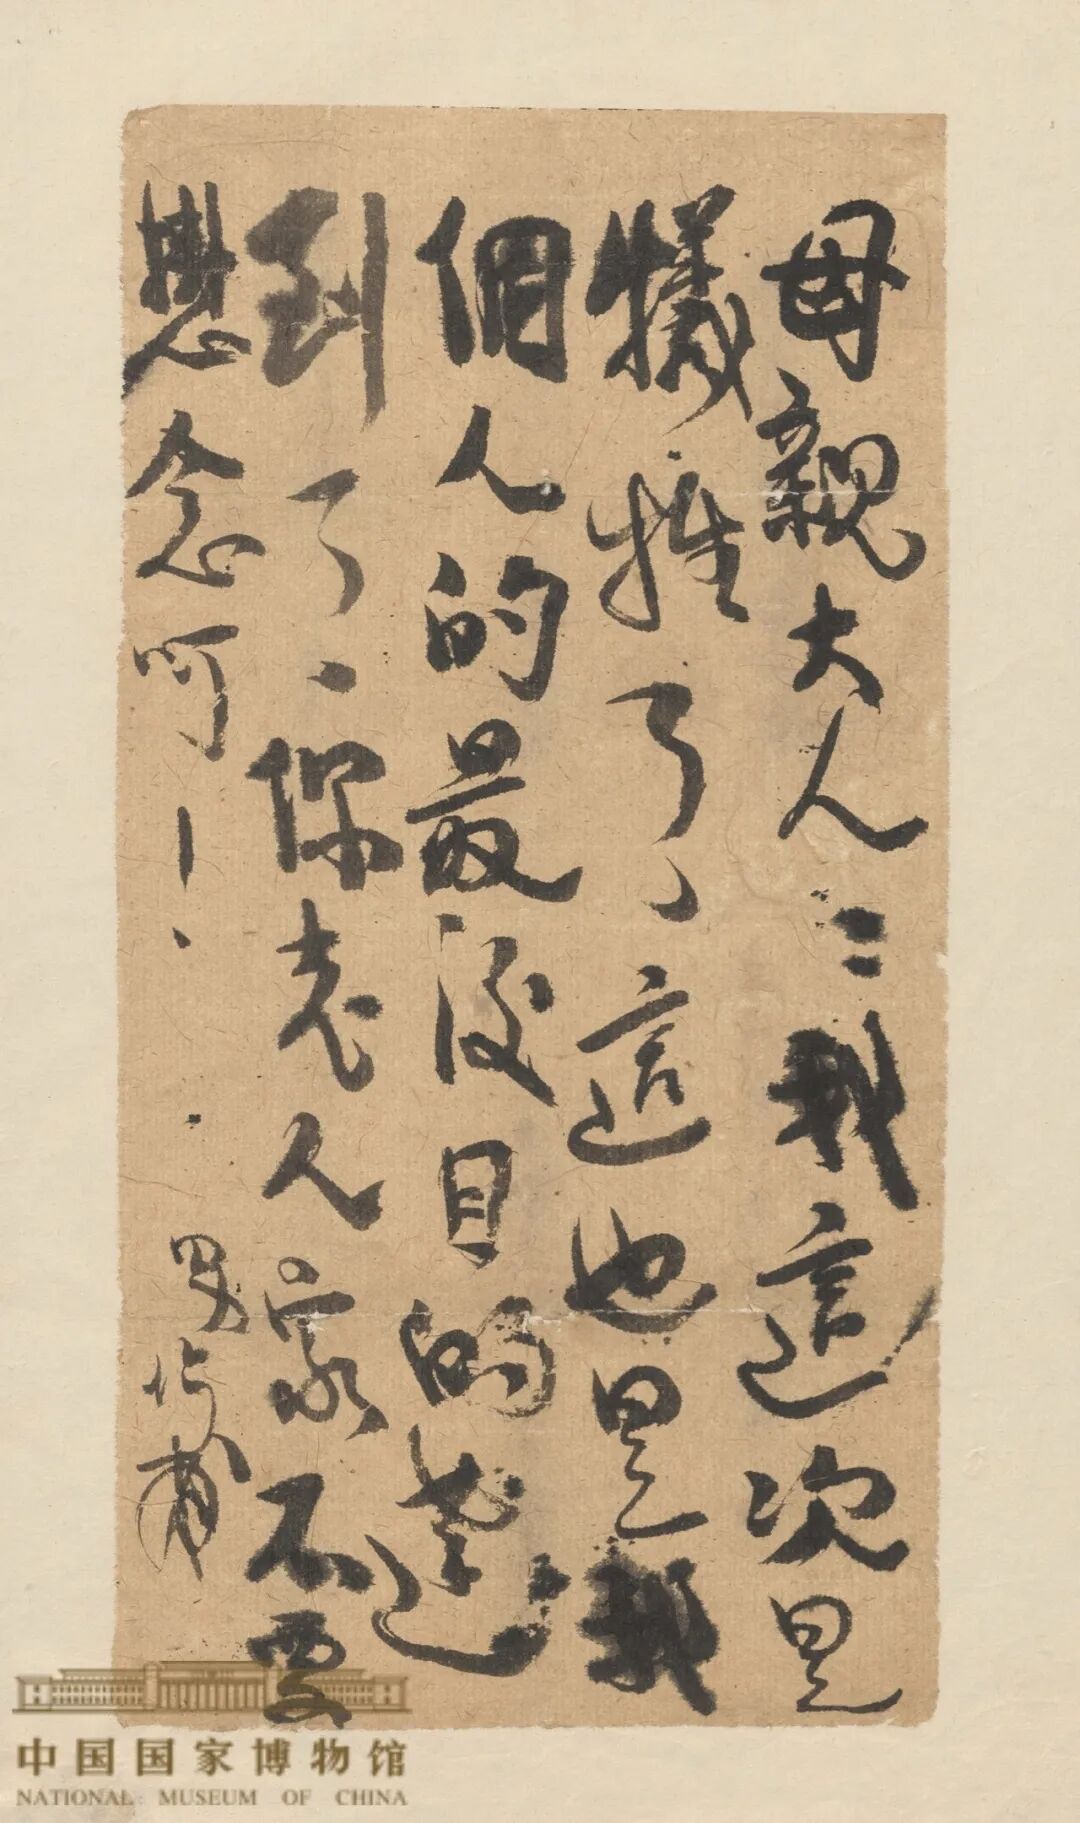 母親大人：：我這次是
犧牲了、這也是我
個人的最後目的達
到了、你老人家不要
掛念可！．
中国国家博物馆
NATIONAL MUSEUM OF CHINA